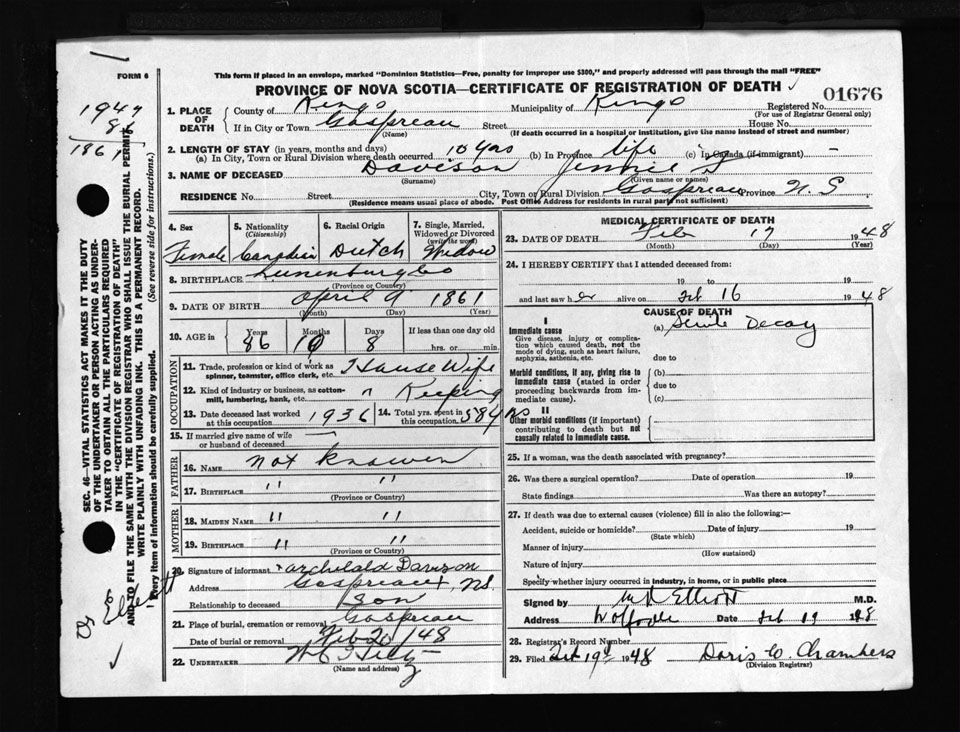 FORM 6
This form if placed in an envelope, marked "Dominion Statistics—Free, penalty for improper use $300," and properly addressed will pass through the mail "FREE"
PROVINCE OF NOVA SCOTIA—CERTIFICATE OF REGISTRATION OF DEATH ✓
01676
1947
8
1861
1. PLACE OF DEATH
County of Kings Municipality of Kings Registered No.
(For use of Registrar General only)
If in City or Town Gaspreau Street House No.
(Name) (If death occurred in a hospital or institution, give the name instead of street and number)
2. LENGTH OF STAY (in years, months and days)
(a) In City, Town or Rural Division where death occurred 10 yrs (b) In Province life (c) In Canada (if immigrant) -
3. NAME OF DECEASED Davison Jennie
(Surname) (Given name or names)
RESIDENCE No. Street City, Town or Rural Division Gaspreau Province N S
(Residence means usual place of abode. Post Office Address for residents in rural parts not sufficient)
4. Sex Female
5. Nationality (Citizenship) Canadian
6. Racial Origin Dutch
7. Single, Married, Widowed or Divorced (write the word) Widow
8. BIRTHPLACE Lunenburg Co
(Province or Country)
9. DATE OF BIRTH April 9 1861
(Month) (Day) (Year)
10. AGE in Years 86 Months 10 Days 8 If less than one day old
hrs. or min.
OCCUPATION
11. Trade, profession or kind of work as spinner, teamster, office clerk, etc. House Wife
12. Kind of industry or business, as cotton-mill, lumbering, bank, etc. " Keeping
13. Date deceased last worked at this occupation 1936
14. Total yrs. spent in this occupation 58 yrs
15. If married give name of wife or husband of deceased
FATHER
16. NAME not known
17. BIRTHPLACE " "
(Province or Country)
MOTHER
18. MAIDEN NAME " "
19. BIRTHPLACE " "
(Province or Country)
20. Signature of informant Archibald Davison
Address Gaspreau, NS.
Relationship to deceased son
21. Place of burial, cremation or removal Gaspreau
Date of burial or removal Feb 20/48
22. UNDERTAKER
(Name and address)
MEDICAL CERTIFICATE OF DEATH
23. DATE OF DEATH Feb 17 1948
(Month) (Day) (Year)
24. I HEREBY CERTIFY that I attended deceased from:
19 to 19
and last saw her alive on Feb 16 1948
CAUSE OF DEATH
I
Immediate cause
Give disease, injury or complication which caused death, not the mode of dying, such as heart failure, asphyxia, asthenia, etc.
(a) Senile Decay
due to
Morbid conditions, if any, giving rise to immediate cause (stated in order proceeding backwards from immediate cause).
(b)
due to
(c)
II
Other morbid conditions (if important) contributing to death but not causally related to immediate cause.
25. If a woman, was the death associated with pregnancy?
26. Was there a surgical operation? Date of operation 19
State findings Was there an autopsy?
27. If death was due to external causes (violence) fill in also the following:—
Accident, suicide or homicide? Date of injury 19
(State which)
Manner of injury
(How sustained)
Nature of injury
Specify whether injury occurred in industry, in home, or in public place
Signed by Elliott M.D.
Address Wolfville Date Feb 19 1948
28. Registrar's Record Number
29. Filed Feb 19th 1948 Doris C. Chambers
(Division Registrar)
SEC. 46—VITAL STATISTICS ACT MAKES IT THE DUTY
OF THE UNDERTAKER OR PERSON ACTING AS UNDER-
TAKER TO OBTAIN ALL THE PARTICULARS REQUIRED
IN THE "CERTIFICATE OF REGISTRATION OF DEATH"
AND TO FILE THE SAME WITH THE DIVISION REGISTRAR WHO SHALL ISSUE THE BURIAL PERMIT.
WRITE PLAINLY WITH UNFADING INK. THIS IS A PERMANENT RECORD.
Every item of information should be carefully supplied. (See reverse side for instructions.)
Elliott
✓